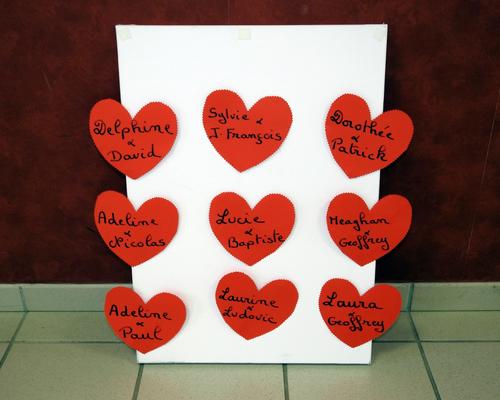 Delphine
&
David
Sylvie &
J. François
Dorothée
&
Patrick
Adeline
&
Nicolas
Lucie
&
Baptiste
Meaghan
&
Geoffrey
Adeline
&
Paul
Laurine
&
Ludovic
Laura
&
Geoffrey